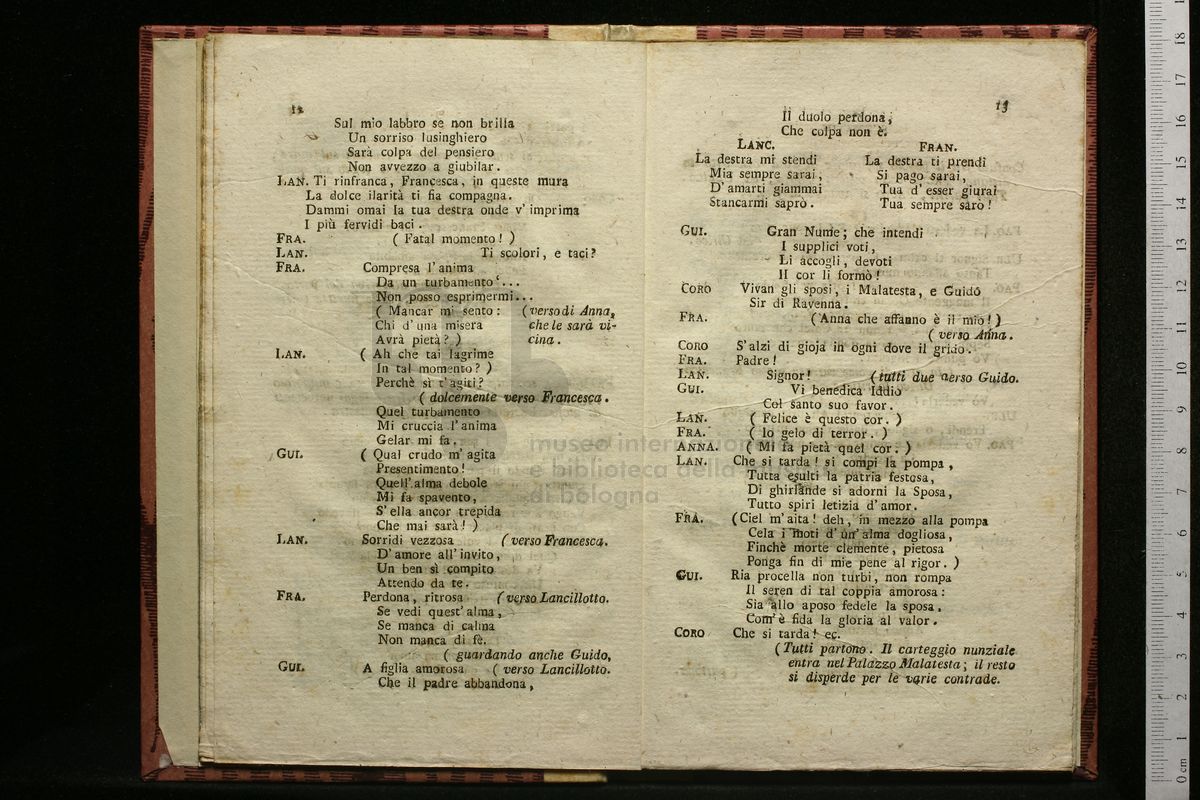 12
Sul mio labbro se non brilla
Un sorriso lusinghiero
Sarà colpa del pensiero
Non avvezzo a giubilar.
LAN. Ti rinfranca, Francesca, in queste mura
La dolce ilarità ti fia compagna.
Dammi omai la tua destra onde v'imprima
I più fervidi baci.
FRA. ( Fatal momento! )
LAN. Ti scolori, e taci?
FRA. Compresa l'anima
Da un turbamento...
Non posso esprimermi...
( Mancar mi sento: (verso di Anna,
Chi d'una misera che le sarà vi-
Avrà pietà? ) cina.
LAN. ( Ah che tai lagrime
In tal momento? )
Perchè sì t'agiti?
( dolcemente verso Francesca.
Quel turbamento
Mi cruccia l'anima
Gelar mi fa.
GUI. ( Qual crudo m'agita
Presentimento!
Quell'alma debole
Mi fa spavento,
S'ella ancor trepida
Che mai sarà! )
LAN. Sorridi vezzosa (verso Francesca.
D'amore all'invito,
Un ben sì compito
Attendo da te.
FRA. Perdona, ritrosa (verso Lancillotto.
Se vedi quest'alma,
Se manca di calma
Non manca di fè.
( guardando anche Guido,
GUI. A figlia amorosa (verso Lancillotto.
Che il padre abbandona,
13
Il duolo perdona,
Che colpa non è.
LANC. FRAN.
La destra mi stendi La destra ti prendi
Mia sempre sarai, Si pago sarai,
D'amarti giammai Tua d'esser giurai
Stancarmi saprò. Tua sempre sarò!
GUI. Gran Nume; che intendi
I supplici voti,
Li accogli, devoti
Il cor li formò!
CORO Vivan gli sposi, i Malatesta, e Guido
Sir di Ravenna.
FRA. (Anna che affanno è il mio!)
( verso Anna.
CORO S'alzi di gioja in ogni dove il grido.
FRA. Padre!
LAN. Signor! (tutti due verso Guido.
GUI. Vi benedica Iddio
Col santo suo favor.
LAN. ( Felice è questo cor. )
FRA. ( Io gelo di terror. )
ANNA. ( Mi fa pietà quel cor. )
LAN. Che si tarda! si compi la pompa,
Tutta esulti la patria festosa,
Di ghirlande si adorni la Sposa,
Tutto spiri letizia d'amor.
FRA. (Ciel m'aita! deh, in mezzo alla pompa
Cela i moti d'un'alma dogliosa,
Finchè morte clemente, pietosa
Ponga fin di mie pene al rigor. )
GUI. Ria procella non turbi, non rompa
Il seren di tal coppia amorosa:
Sia allo aposo fedele la sposa,
Com'è fida la gloria al valor.
CORO Che si tarda! ec.
(Tutti partono. Il carteggio nunziale
entra nel Palazzo Malatesta; il resto
si disperde per le varie contrade.
museo inter
e biblioteca della
di bologna
0 cm 1 2 3 4 5 6 7 8 9 10 11 12 13 14 15 16 17 18